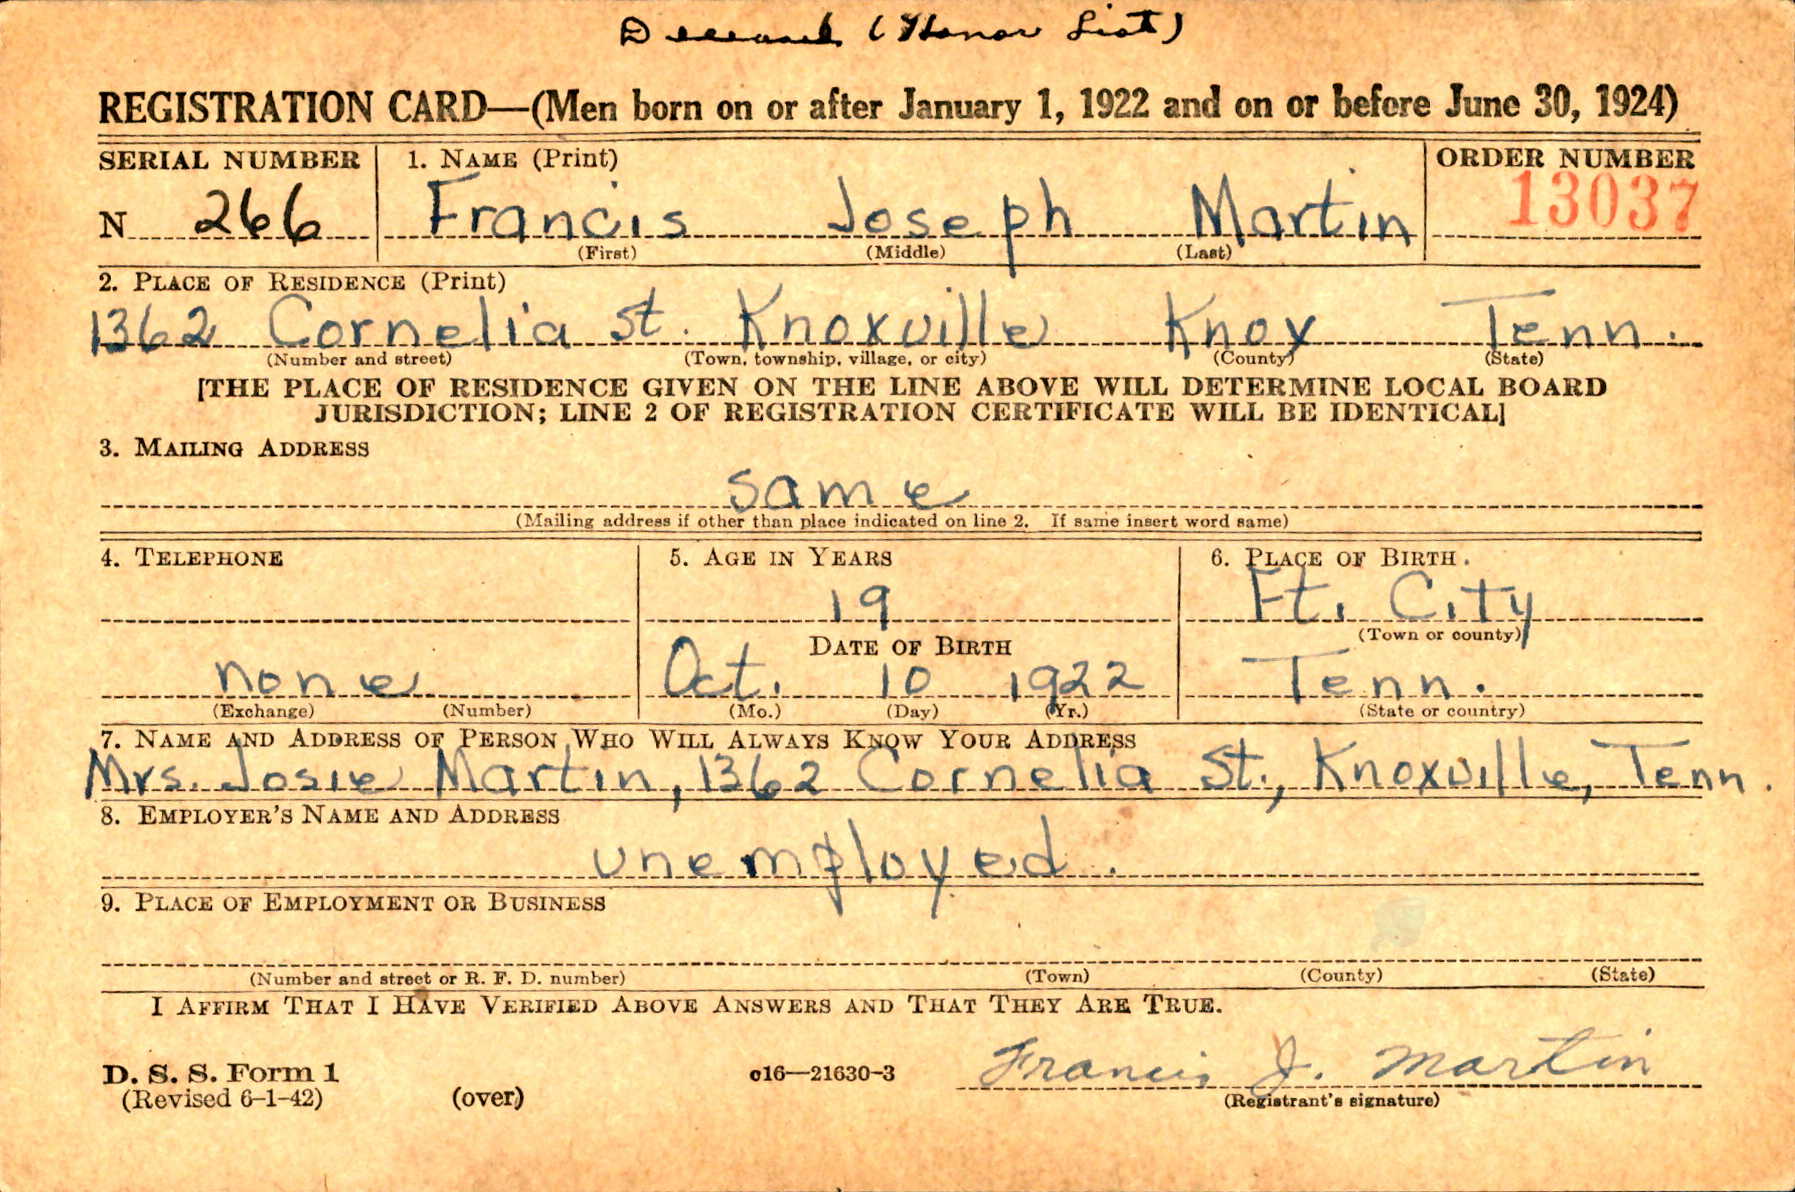 Deceased (Honor List)
REGISTRATION CARD—(Men born on or after January 1, 1922 and on or before June 30, 1924)
SERIAL NUMBER 1. NAME (Print) ORDER NUMBER
N 266 Francis Joseph Martin 13037
(First) (Middle) (Last)
2. PLACE OF RESIDENCE (Print)
1362 Cornelia St. Knoxville Knox Tenn.
(Number and street) (Town, township, village, or city) (County) (State)
[THE PLACE OF RESIDENCE GIVEN ON THE LINE ABOVE WILL DETERMINE LOCAL BOARD
JURISDICTION; LINE 2 OF REGISTRATION CERTIFICATE WILL BE IDENTICAL]
3. MAILING ADDRESS
same
(Mailing address if other than place indicated on line 2. If same insert word same)
4. TELEPHONE 5. AGE IN YEARS 6. PLACE OF BIRTH
19 Ft. City
DATE OF BIRTH (Town or county)
none Oct. 10 1922 Tenn.
(Exchange) (Number) (Mo.) (Day) (Yr.) (State or country)
7. NAME AND ADDRESS OF PERSON WHO WILL ALWAYS KNOW YOUR ADDRESS
Mrs. Josie Martin, 1362 Cornelia St., Knoxville, Tenn.
8. EMPLOYER'S NAME AND ADDRESS
unemployed.
9. PLACE OF EMPLOYMENT OR BUSINESS
(Number and street or R. F. D. number) (Town) (County) (State)
I AFFIRM THAT I HAVE VERIFIED ABOVE ANSWERS AND THAT THEY ARE TRUE.
D. S. S. Form 1 c16—21630-3 Francis J. Martin
(Revised 6-1-42) (over) (Registrant's signature)